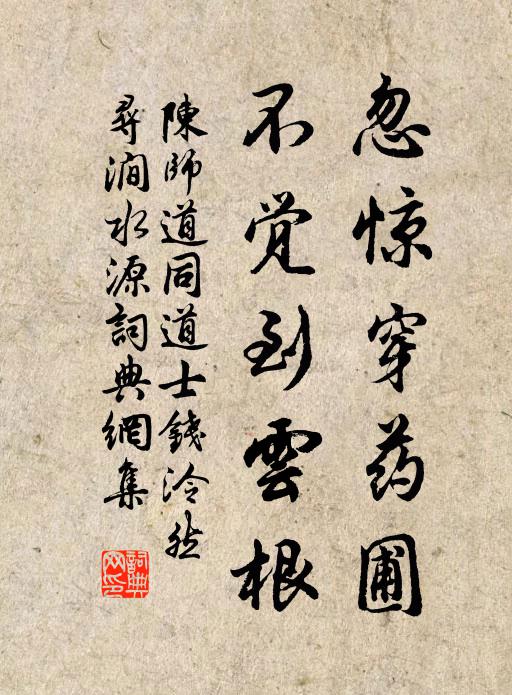 忽惊穿药圃
不觉到雲根
陳師道同道士錢泠然
尋澗水源詞典網集
詞典网印